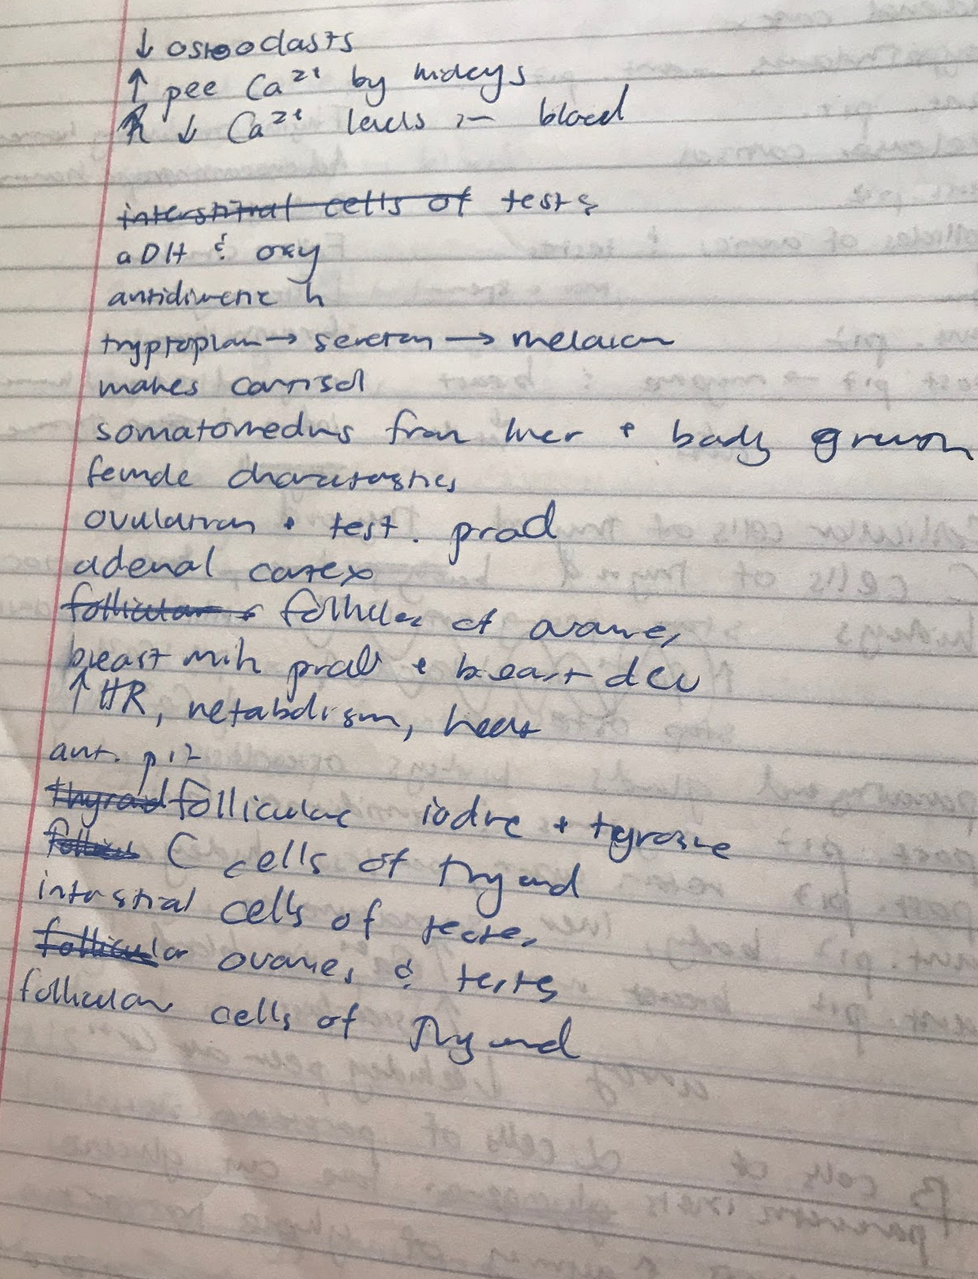 ↓ osteoclasts
↑ pee Ca²⁺ by kidneys
↓ Ca²⁺ levels in blood
interstitial cells of testes
aDH & oxy
antidiuretic h
tryptophan → serotonin → melatonin
makes cortisol
somatomedins from liver + body growth
female charactastics
ovulation + test. prod
adenal cortex
follicular follicles of ovaries
breast milk prod + breast dev
↑ HR, metabolism, heat
ant. pit
thyroid follicular iodine + tyrosine
C cells of thyroid
interstitial cells of testes
follicular ovaries & testes
follicular cells of thyroid